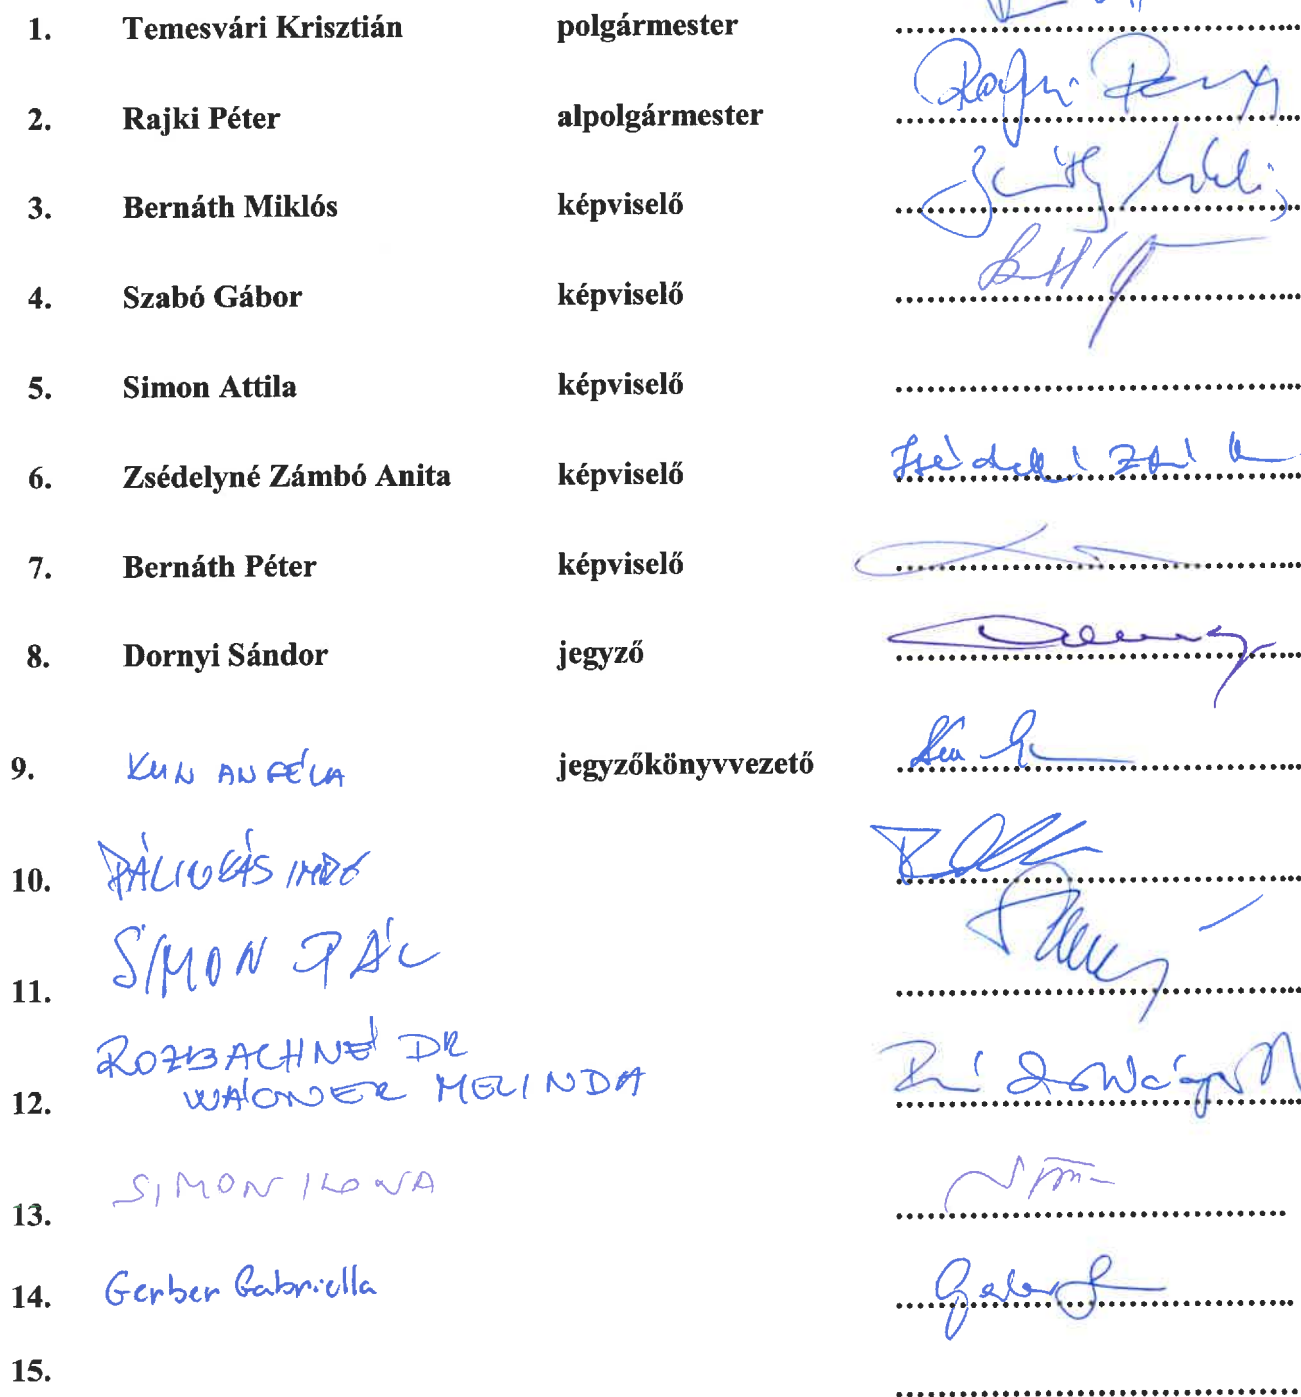 1. Temesvári Krisztián polgármester
2. Rajki Péter alpolgármester
3. Bernáth Miklós képviselő
4. Szabó Gábor képviselő
5. Simon Attila képviselő
6. Zsédelyné Zámbó Anita képviselő
7. Bernáth Péter képviselő
8. Dornyi Sándor jegyző
9. KUN ANGÉLA jegyzőkönyvvezető
10. IMRE
11. SIMON PÁL
ROZBACHNÉ DR
12. WÁGNER MELINDA
13. SIMON ILONA
14. Gerber Gabriella
15.